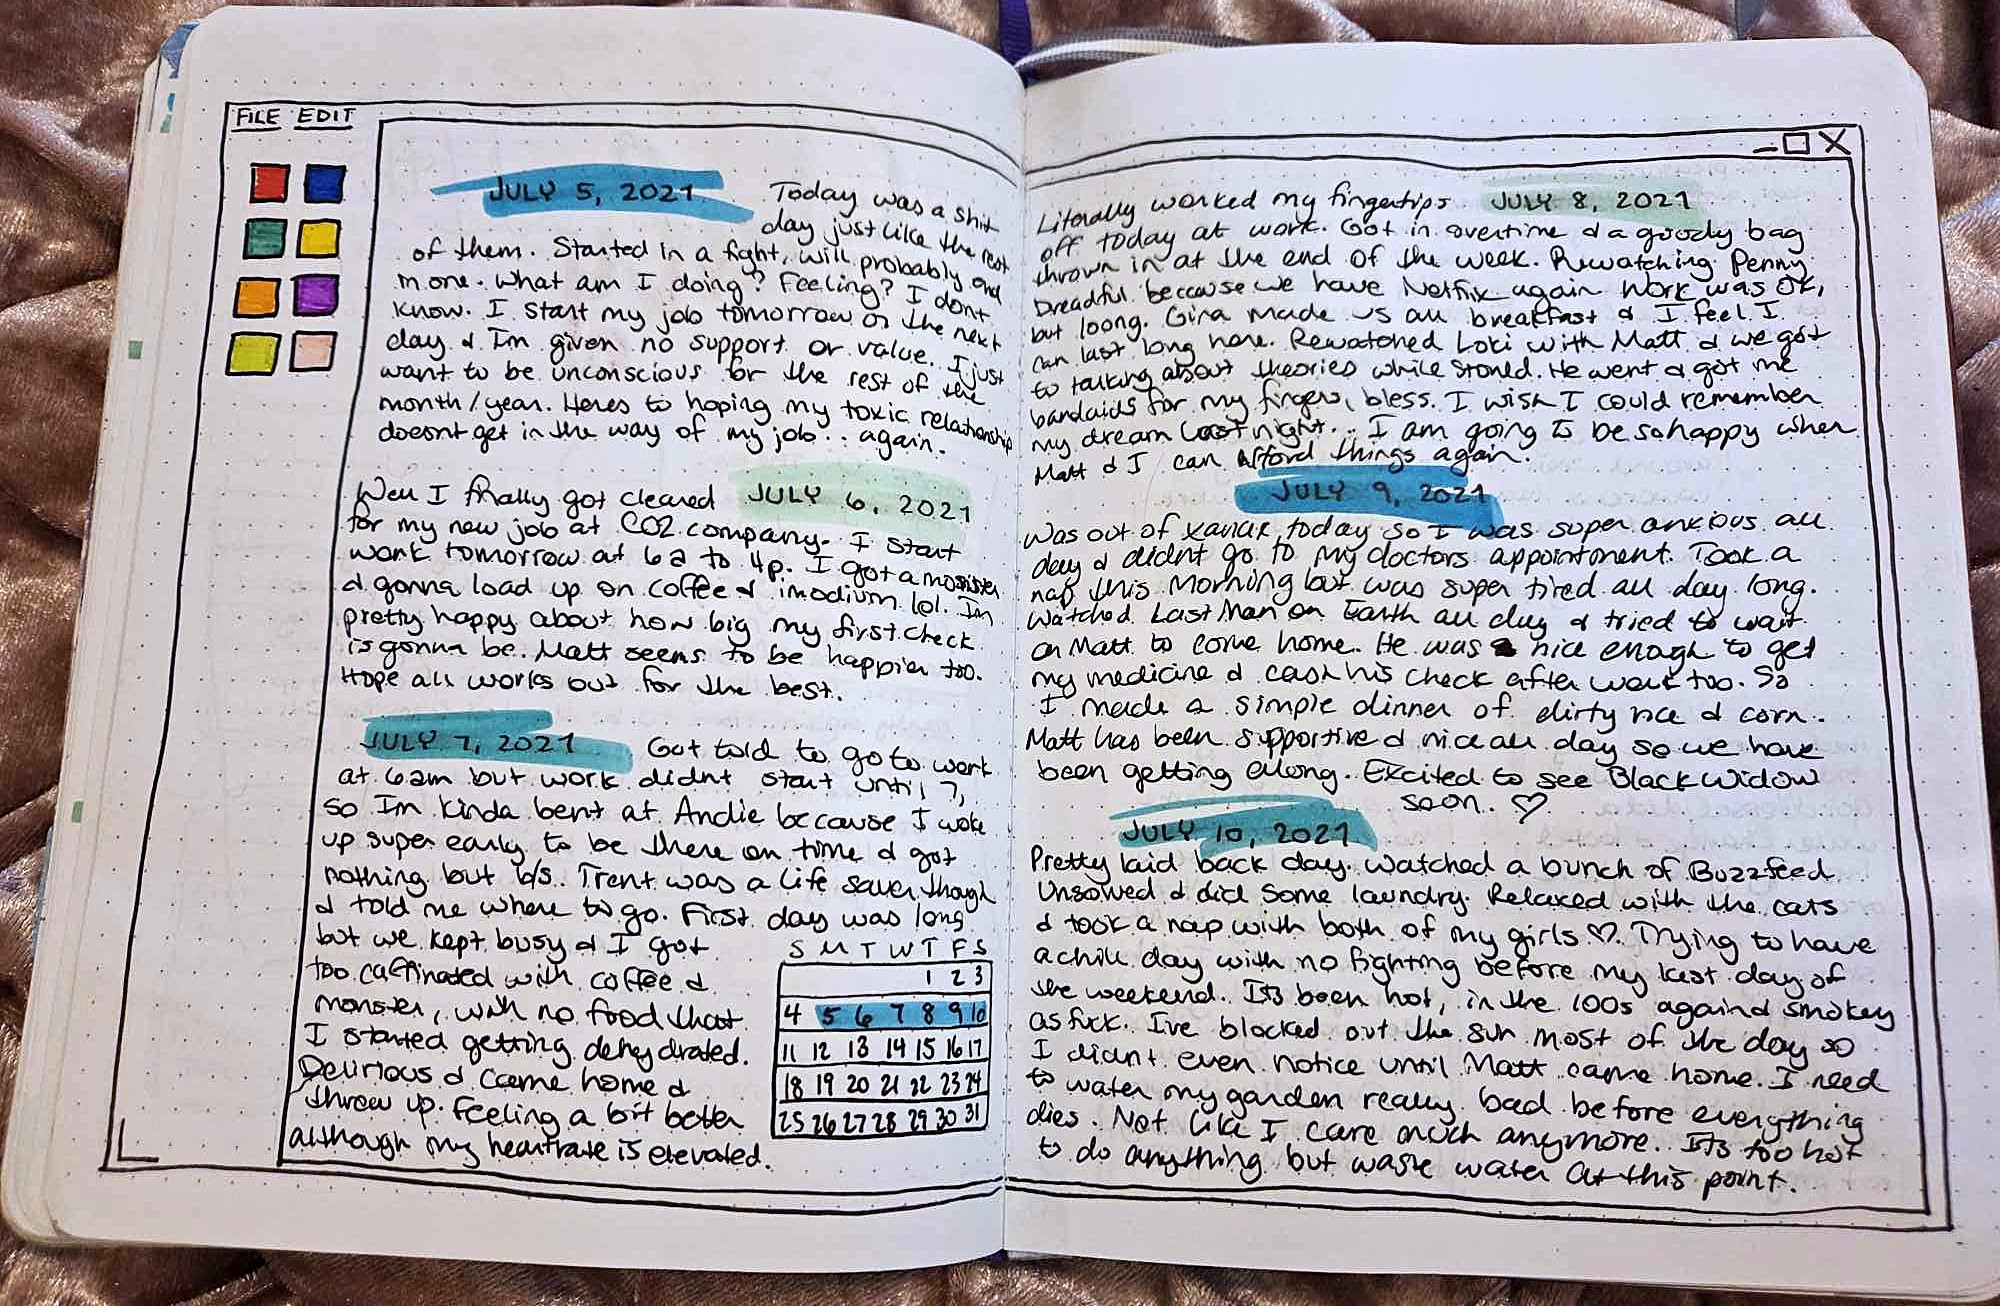 FILE EDIT
JULY 5, 2021
Today was a shit
day just like the rest
of them. Started in a fight, will probably end
in one. What am I doing? Feeling? I dont
know. I start my job tomorrow or the next
day & Im given no support or value. I just
want to be unconscious for the rest of the
month/year. Heres to hoping my toxic relationship
doesnt get in the way of my job.. again.
Well I finally got cleared JULY 6, 2021
for my new job at CO2 company. I start
work tomorrow at 6a to 4p. I got a monster
& gonna load up on coffee & imodium lol. Im
pretty happy about how big my first check
is gonna be. Matt seems to be happier too.
Hope all works out for the best.
JULY 7, 2021 Got told to go to work
at 6am but work didnt start until 7,
so Im kinda bent at Andie because I woke
up super early to be there on time & got
nothing but b/s. Trent was a life saver though
& told me where to go. First day was long
but we kept busy & I got
too caffinated with coffee &
monster, with no food that
I started getting dehydrated.
Delirious & came home &
threw up. Feeling a bit better
although my heartrate is elevated.
S M T W T F S
1 2 3
4 5 6 7 8 9 10
11 12 13 14 15 16 17
18 19 20 21 22 23 24
25 26 27 28 29 30 31
Literally worked my fingertips JULY 8, 2021
off today at work. Got in overtime & a goody bag
thrown in at the end of the week. Rewatching Penny
Dreadful because we have Netflix again Work was OK,
but loong. Gina made us all breakfast & I feel I
can last long here. Rewatched Loki with Matt & we got
to talking about theories while stoned. He went & got me
bandaids for my fingers, bless. I wish I could remember
my dream last night.. I am going to be so happy when
Matt & I can afford things again.
JULY 9, 2021
Was out of xanax today so I was super anxious all
day & didnt go to my doctors appointment. Took a
nap this morning but was super tired all day long.
Watched Last Man on Earth all day & tried to wait
on Matt to come home. He was nice enough to get
my medicine & cash his check after work too. So
I made a simple dinner of dirty rice & corn.
Matt has been supportive & nice all day so we have
been getting along. Excited to see Black Widow
soon. ♡
JULY 10, 2021
Pretty laid back day. Watched a bunch of Buzzfeed
Unsolved & did some laundry. Relaxed with the cats
& took a nap with both of my girls ♡. Trying to have
a chill day with no fighting before my last day of
the weekend. Its been hot, in the 100s again & smokey
as fuck. Ive blocked out the sun most of the day so
I didnt even notice until Matt came home. I need
to water my garden really bad before everything
dies. Not like I care much anymore. Its too hot
to do anything but waste water at this point.